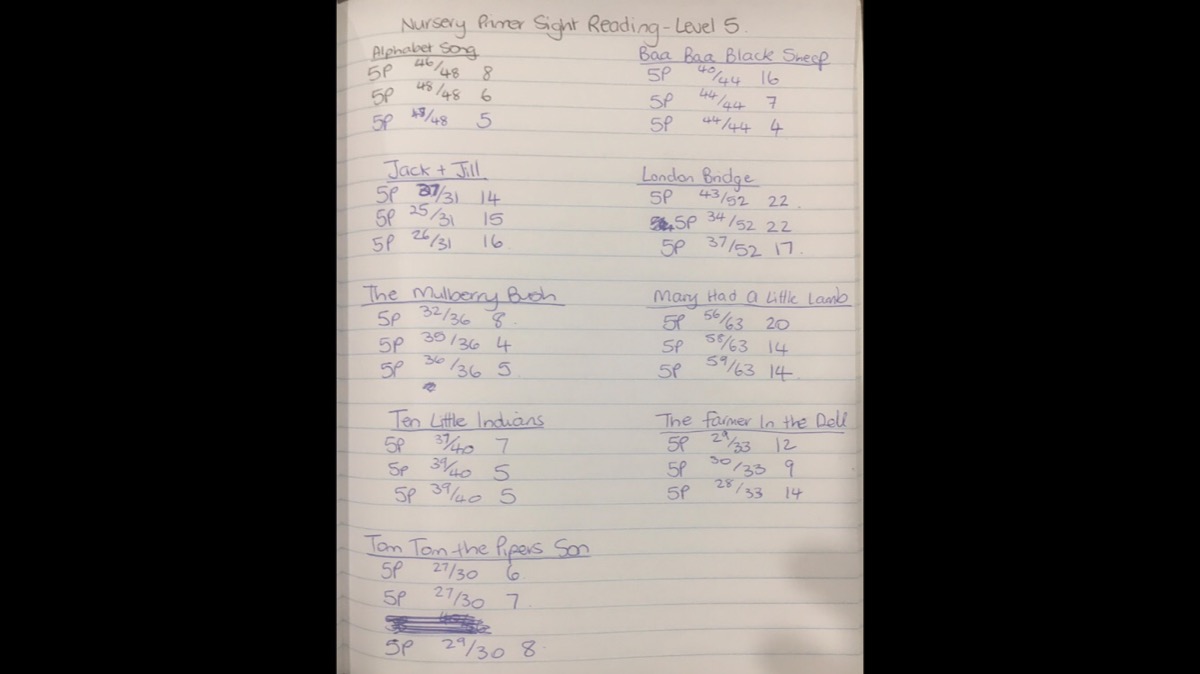 Nursery Primer Sight Reading - Level 5
Alphabet Song
5P 46/48 8
5P 48/48 6
5P 48/48 5
Baa Baa Black Sheep
5P 40/44 16
5P 44/44 7
5P 44/44 4
Jack + Jill
5P /31 14
5P 25/31 15
5P 26/31 16
London Bridge
5P 43/52 22
5P 34/52 22
5P 37/52 17
The Mulberry Bush
5P 32/36 8
5P 35/36 4
5P 36/36 5
Mary Had A Little Lamb
5P 56/63 20
5P 58/63 14
5P 59/63 14
Ten Little Indians
5P 37/40 7
5P 39/40 5
5P 39/40 5
The Farmer In the Dell
5P 29/33 12
5P 30/33 9
5P 28/33 14
Tom Tom the Pipers Son
5P 27/30 6
5P 27/30 7
5P 29/30 8